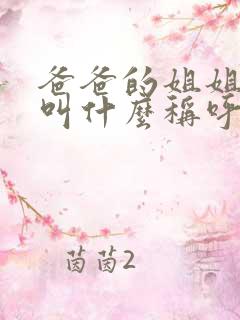 爸爸的姐姐
叫什麼稱呼
茵茵2